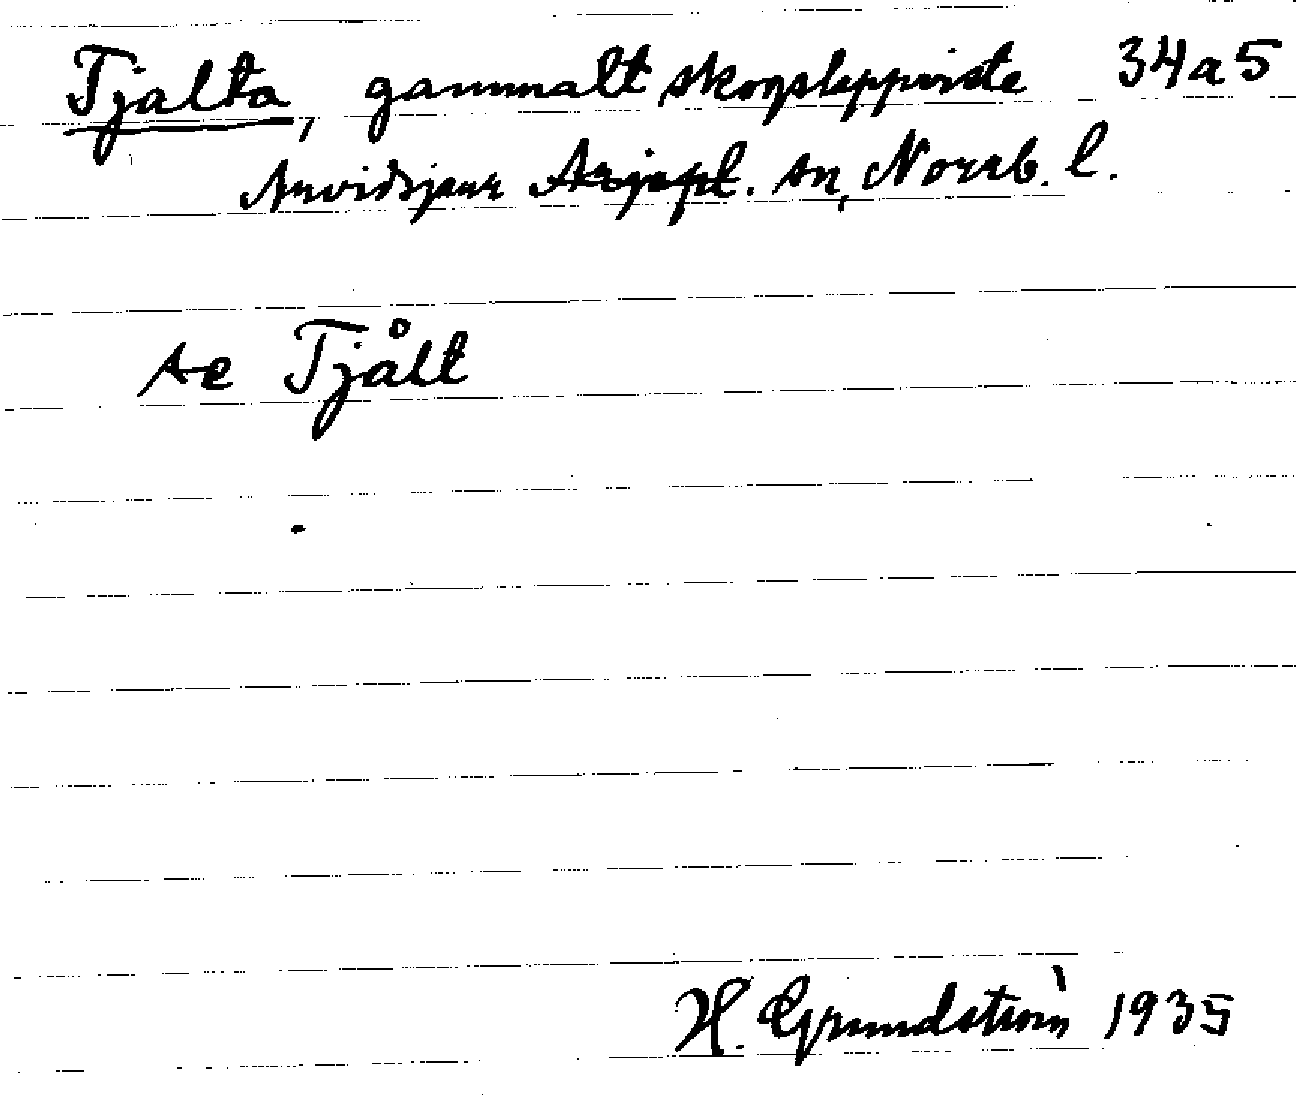 Tjalta, gammalt skogslappviste 34a5
Arvidsjaur Arjepl. sn, Norrb. l.
Se Tjålt
H. Grundström 1935